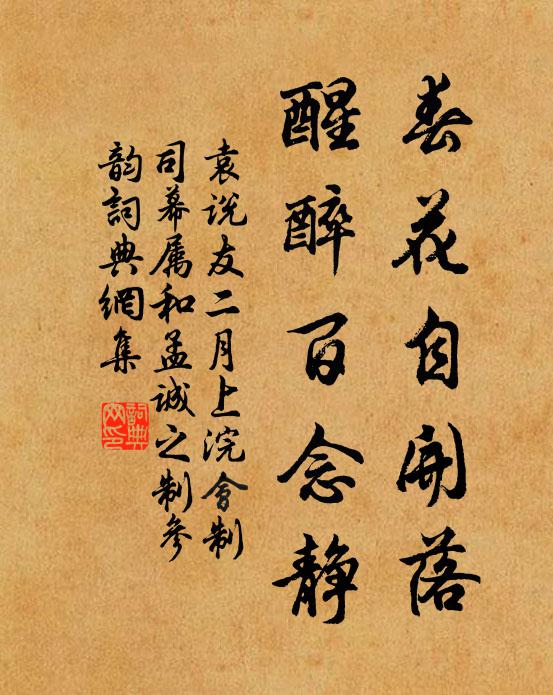 春花自開落
醒醉百念静
袁说友二月上浣會制
司幕属和孟诚之制參
韵詞典網集
詞典
网印